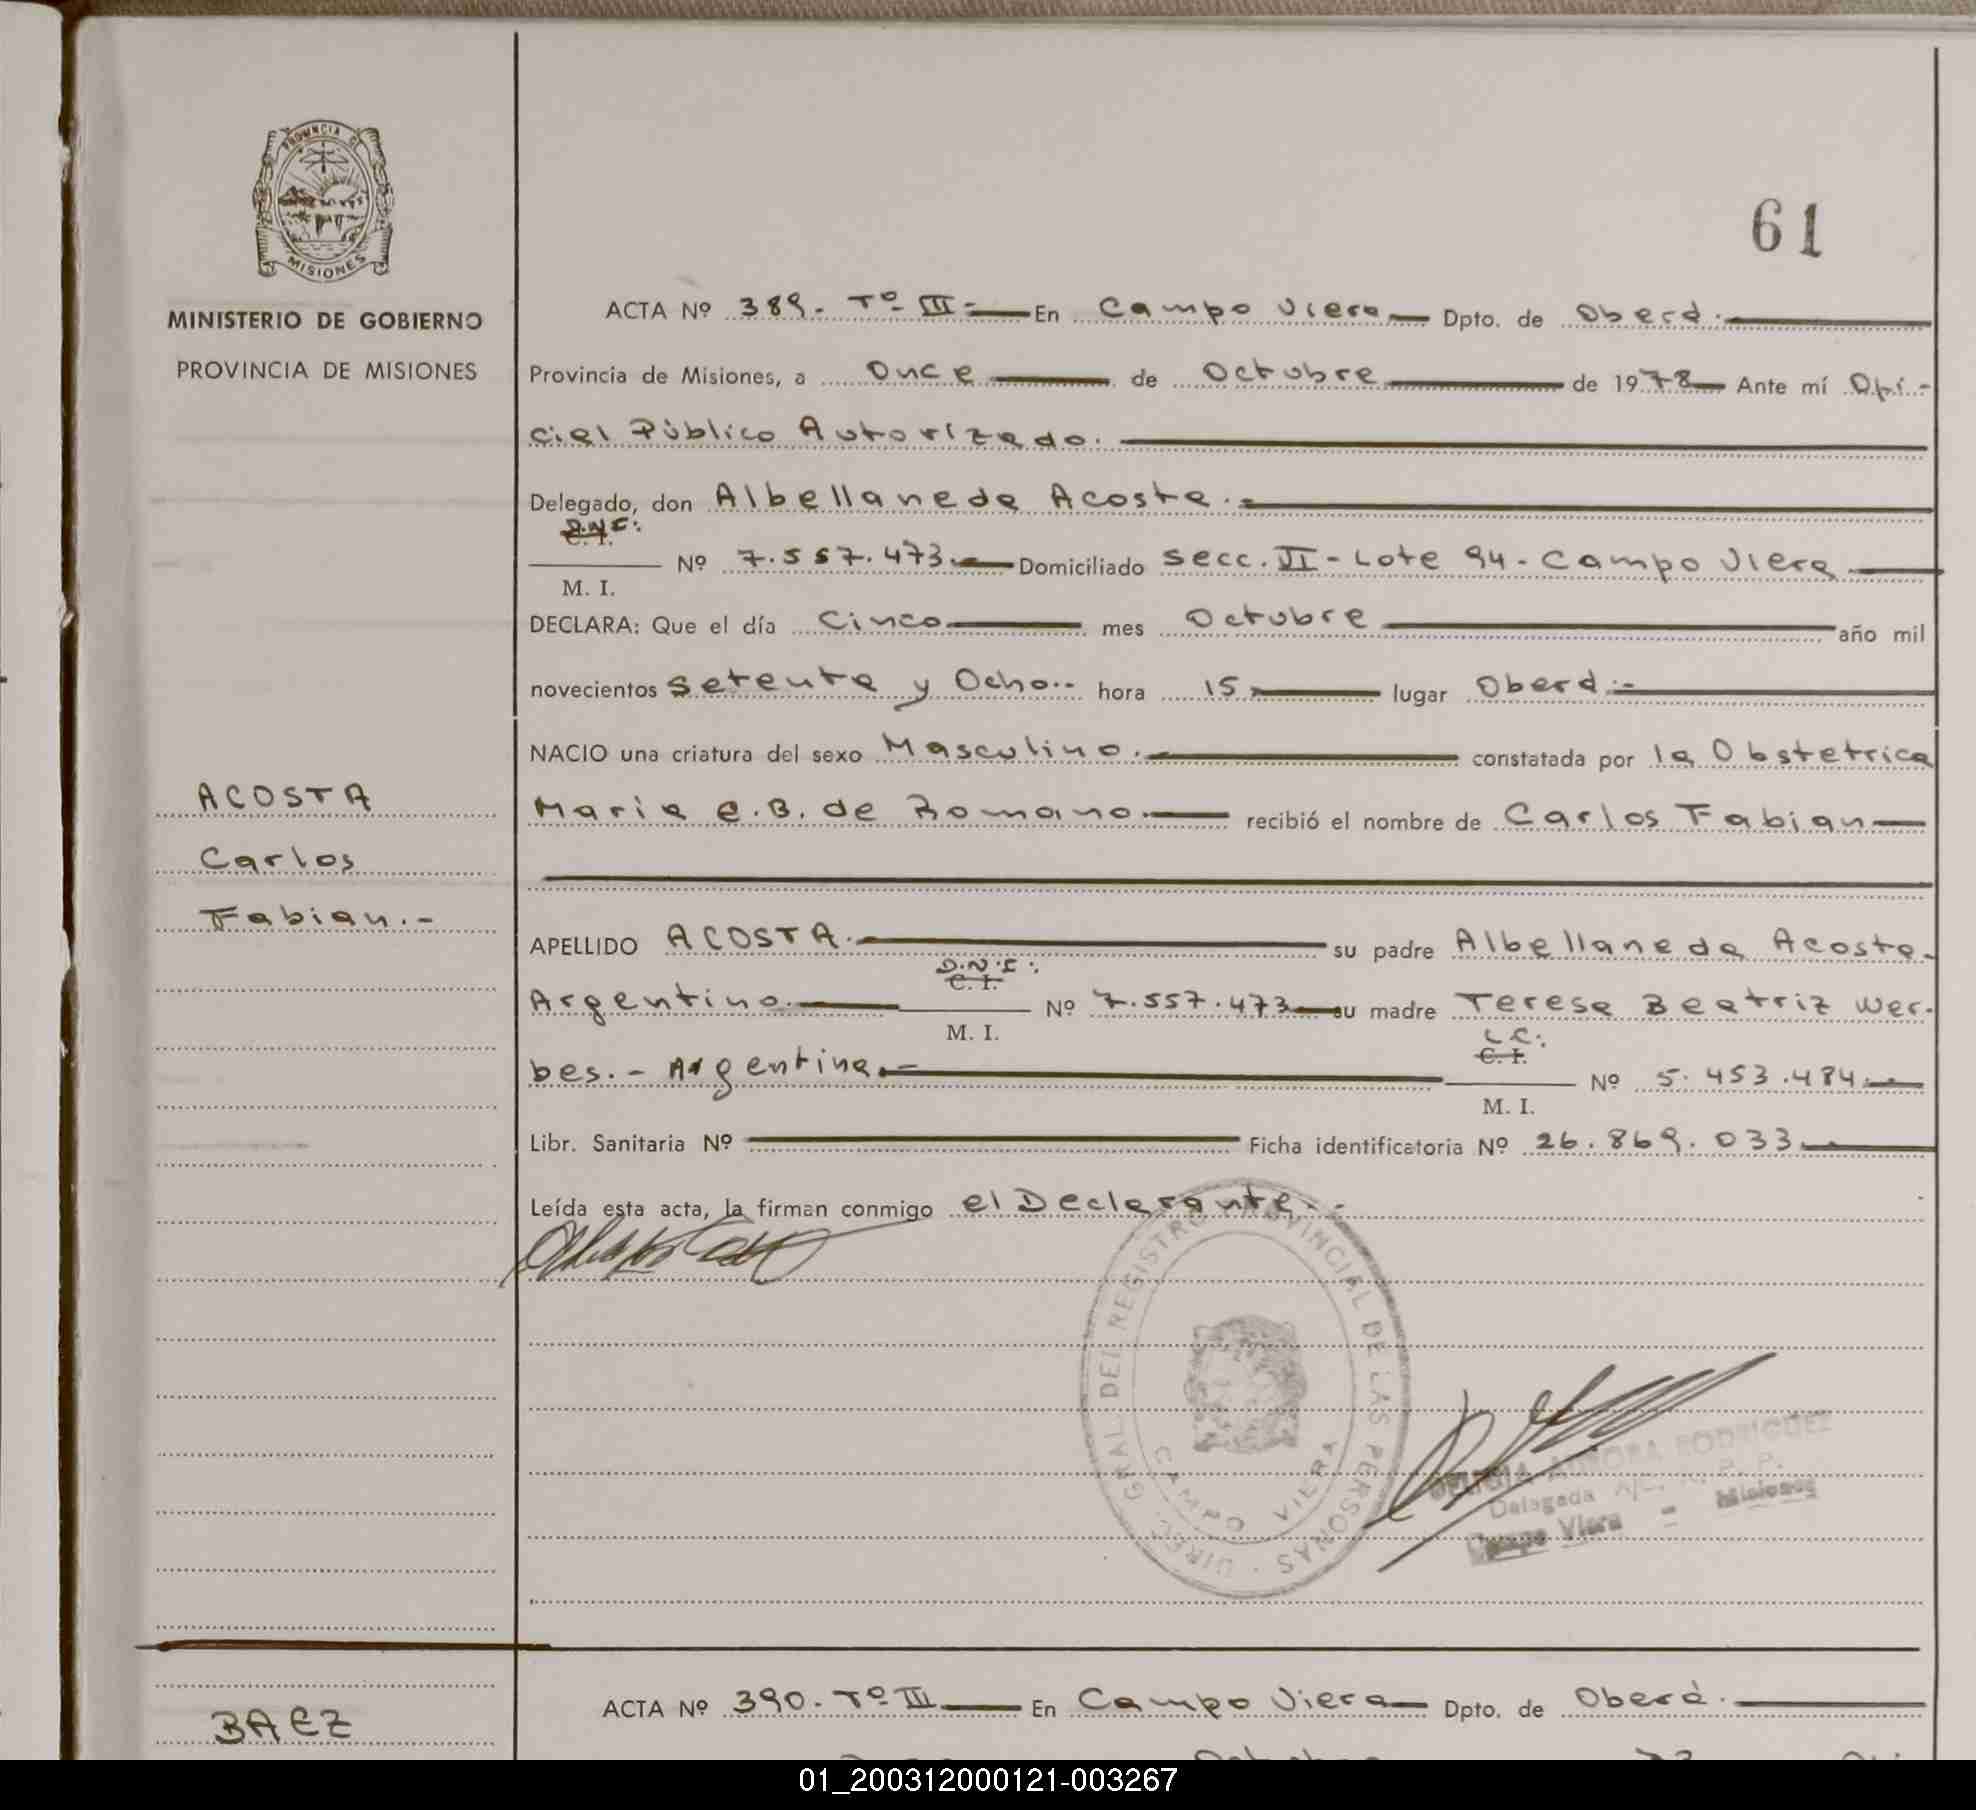 PROVINCIA DE
MISIONES
MINISTERIO DE GOBIERNO
PROVINCIA DE MISIONES
61
ACTA Nº 389.- Tº III - En Campo Viera Dpto. de Oberá.
Provincia de Misiones, a Once de Octubre de 1978 Ante mí Ofi-
cial Público Autorizado.
Delegado, don Albellaneda Acosta.-
D.N.I:
C. I.
M. I.
Nº 7.557.473.- Domiciliado Secc. VI - Lote 94 - Campo Viera
DECLARA: Que el día Cinco mes Octubre año mil
novecientos Setenta y Ocho.- hora 15 lugar Oberá.-
NACIO una criatura del sexo Masculino. constatada por la Obstetrica
Maria E.B. de Romano recibió el nombre de Carlos Fabian
ACOSTA
Carlos
Fabian.-
APELLIDO ACOSTA. su padre Albellaneda Acosta-
D.N.I:
C. I.
Argentino. M. I. Nº 7.557.473 su madre Teresa Beatriz Wer-
L.C:
C. I.
bes.- Argentina.- M. I. Nº 5.453.484.-
Libr. Sanitaria Nº Ficha identificatoria Nº 26.869.033
Leída esta acta, la firman conmigo el Declarante.-
DIREC. GRAL. DEL REGISTRO PROVINCIAL DE LAS PERSONAS
CAMPO VIERA
AURORA RODRIGUEZ
Delegada A/C. R. P. P.
Campo Viera - Misiones
ACTA Nº 390.- Tº III En Campo Viera Dpto. de Oberá.
BAEZ
01_200312000121-003267